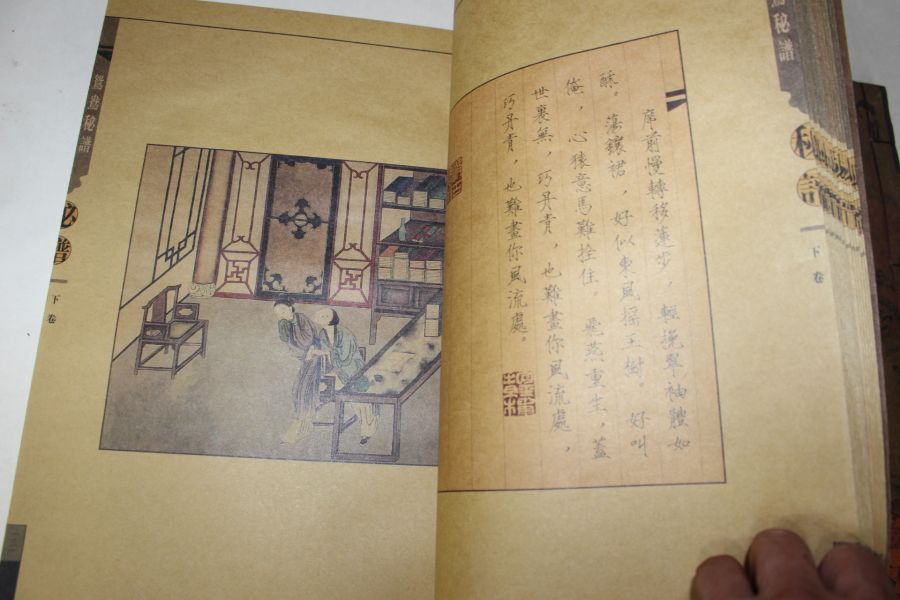 鴛鴦秘譜
秘譜
下卷
席前慢轉移蓮步，輕挽翠袖體如
酥。蕩鑲裙，好似東風搖玉樹。好叫
俺，心猿意馬難拴住。飛燕重生，蓋
世裏無，巧丹青，也難盡你風流處，
巧丹青，也難盡你風流處。
鴦秘譜
秘譜
下卷